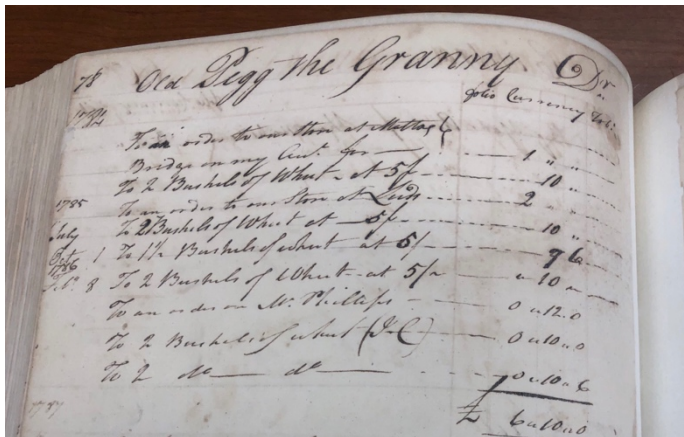 78 Old Pegg the Granny Dr.
folio Currency Tob:
1784
To an order to our Store at Mattox
Bridge on my Acct. for — 1 " "
To 2 Bushels of Wheat — at 5/ — 10 "
1785 To an order to our Store at Leeds — 2 " "
July To 2 Bushels of Wheat at — 5/ — 10 "
Octr. 1 To 1 1/2 Bushels of wheat at 5/ — 7 6
1786
8 To 2 Bushels of Wheat — at 5/ — " 10 "
To an order on Mr. Phillips — 0 " 12 . 0
To 2 Bushels of wheat — 0 " 10 " 0
To 2 do — do — 0 " 10 " 6
1787
£ 6 " 10 " 0